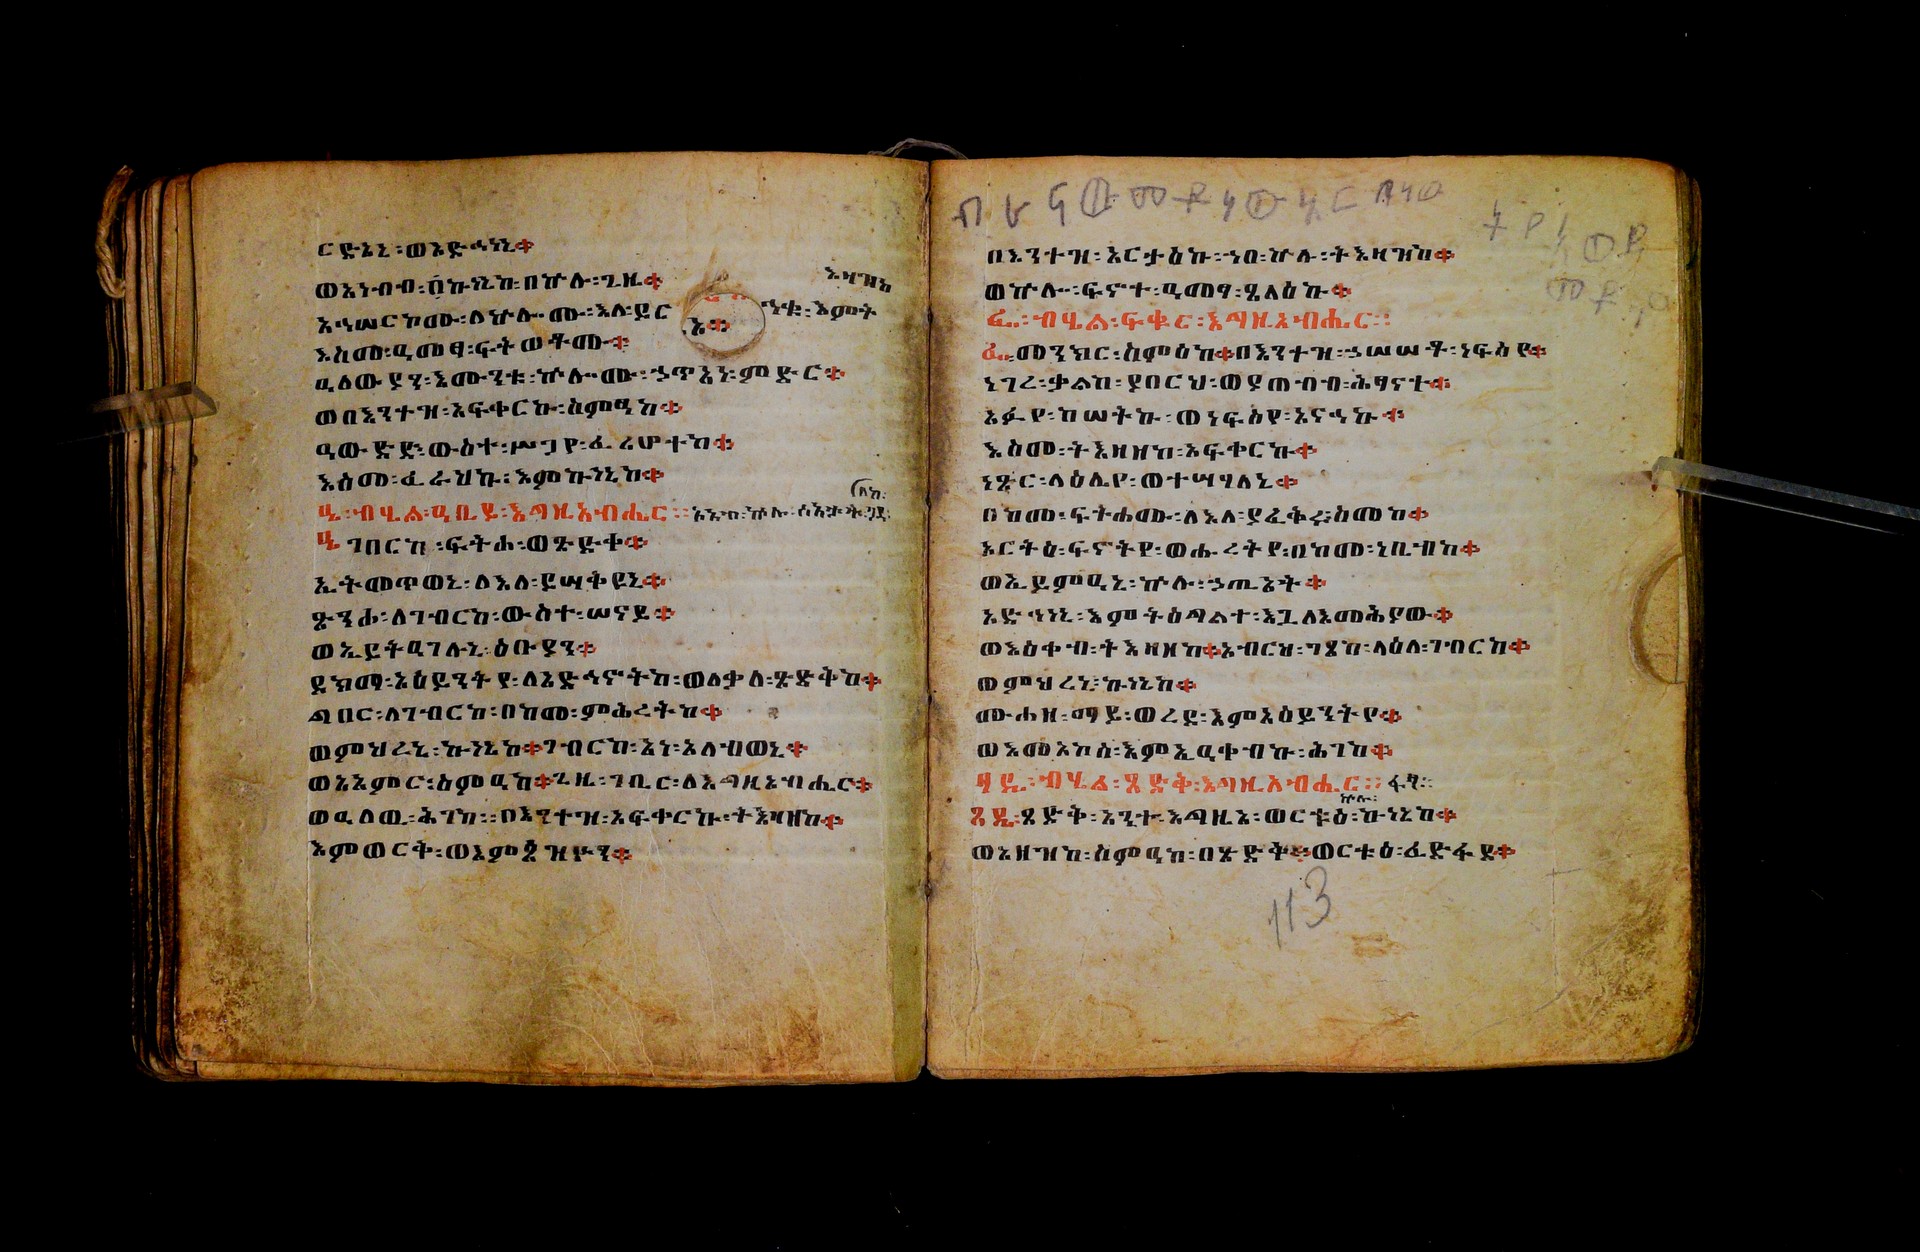 ርድአኒ፡ወእድኅነኒ፨
ወእነብብ፡በኵነኔከ፡በኵሉ፡ጊዜ፨
እዛዝከ
አኅሠርኮሙ፡ለኵሎሙ፡እለ፡ይር ኅቁ፡እምት
እስመ፡ዓመፃ፡ፍትወቶሙ፨
ዓለውያን፡እሙንቱ፡ኵሎሙ፡ኃጥኣነ፡ምድር፨
ወበእንተዝ፡አፍቀርኩ፡ስምዓከ፨
አውድድ፡ውስተ፡ሥጋየ፡ፈሪሆተከ፨
እስመ፡ፈራህኩ፡እምኵነኔከ፨
ዔ፡ብሂል፡ዓቢይ፡እግዚአብሔር፡፡
ዔ ገበርኩ፡ፍትሐ፡ወጽድቀ፨
ኢትመጥወኒ፡ለእለ፡ይሣቅዩኒ፨
ጽንሖ፡ለገብርከ፡ውስተ፡ሠናይ፨
ወኢይትዓገሉኒ፡ዕቡያን፨
ደክማ፡አዕይንትየ፡ለአድኅኖትከ፡ወለቃለ፡ጽድቅከ፨
ግበር፡ለገብርከ፡በከመ፡ምሕረትከ፨
ወምህረኒ፡ኵነኔከ፨ገብርከ፡አነ፡አለብወኒ፨
ወእእምር፡ስምዓከ፨ጊዜ፡ገቢር፡ለእግዚአብሔር፨
ወዓለዉ፡ሕገከ፡፡በእንተዝ፡አፍቀርኩ፡ትእዛዘከ፨
እምወርቅ፡ወእምጳዝዮን፨
በእንተዝ፡አርታዕኩ፡ኀበ፡ኵሉ፡ትእዛዝከ፨
ወኵሎ፡ፍኖተ፡ዓመፃ፡ጸላዕኩ፨
ፌ፡ብሂል፡ፍቁር፡እግዚአብሔር፡፡
ፌ፡መንክር፡ስምዕከ፨በእንተዝ፡ኃሠሠቶ፡ነፍስየ፨
ነገረ፡ቃልከ፡ያበርህ፡ወያጠብብ፡ሕፃናተ፨
አፉየ፡ከሠትኩ፡ወነፍስየ፡አናኅኩ፨
እስመ፡ትእዛዘከ፡አፍቀርኩ፨
ነጽር፡ላዕሌየ፡ወተሣሃለኒ፨
በከመ፡ፍትሐሙ፡ለእለ፡ያፈቅሩ፡ስመከ፨
አርትዕ፡ፍኖትየ፡ወሑረትየ፡በከመ፡ነቢብከ፨
ወኢይምዓኒ፡ኵሉ፡ኃጢኣት፨
አድኅነኒ፡እምትዕግልተ፡እጓለእመሕያው፨
ወእዕቀብ፡ትእዛዘከ፨አብርህ፡ገጸከ፡ላዕለ፡ገብርከ፨
ወምህረኒ፡ኵነኔከ፨
ሙሐዘ፡ማይ፡ወረደ፡እምአዕይንትየ፨
ወእመአኮሰ፡እምኢዓቀብኩ፡ሕገከ፨
ጻዴ፡ብሂል፡ጻድቅ፡እግዚአብሔር፡፡
ኵሉ፡
ጻዴ፡ጻድቅ፡አንተ፡እግዚኦ፡ወርቱዕ፡ኵነኔከ፨
ወአዘዝከ፡ስምዓከ፡በጽድቅ፨ወርቱዕ፡ፈድፋደ፨
113